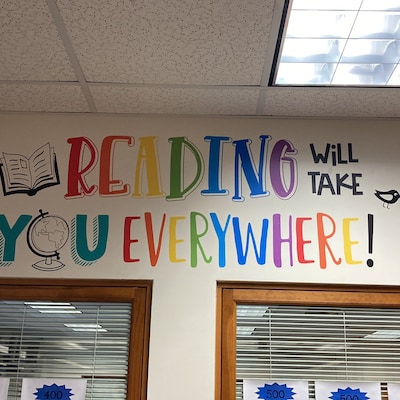 READING WILL TAKE
YOU EVERYWHERE!
400
500
500